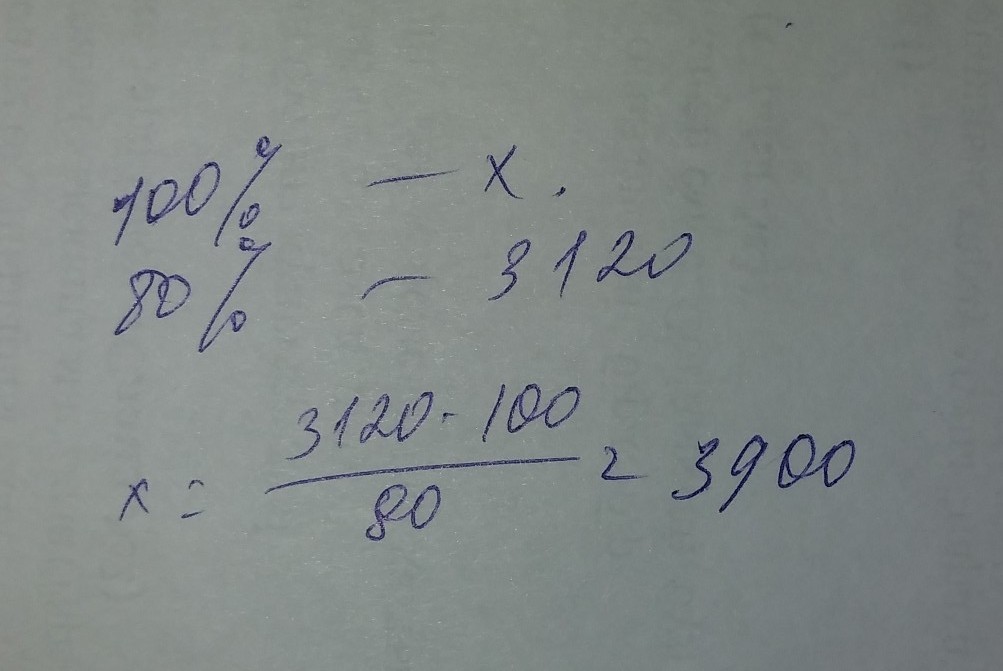 100% — x.
80% — 3120
x = 3120 · 100 / 80 = 3900